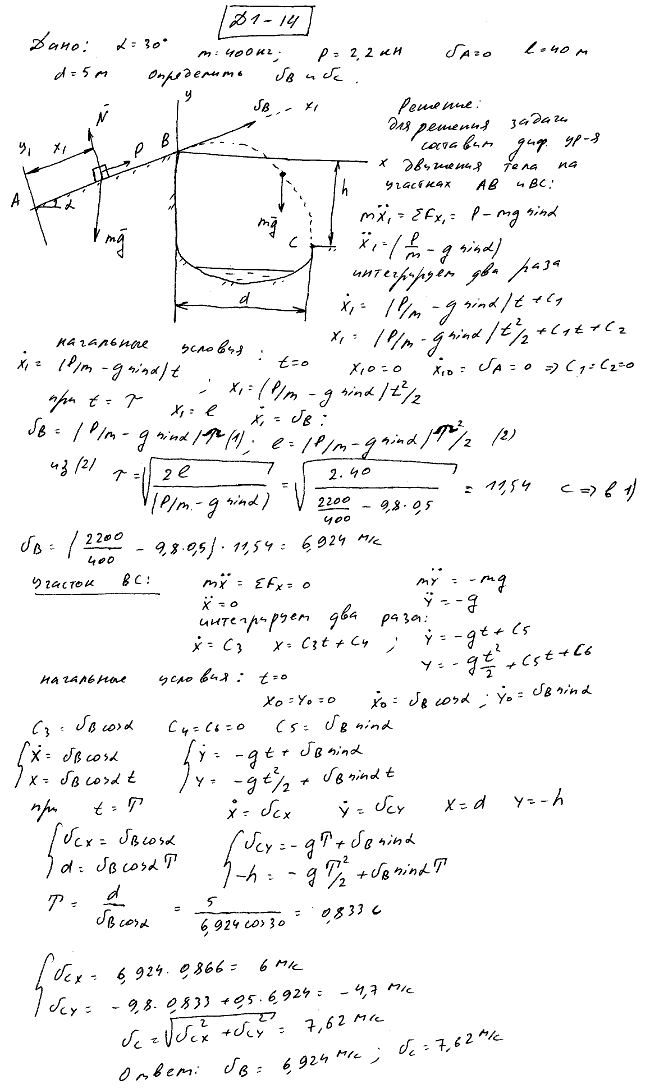 Д1-14
Дано: α=30° m=400 кг; P=2,2 кН υA=0 l=40 м
d=5 м определить υB и υC.
y
υB x1
Решение:
для решения задачи
составим диф. ур-я
движения тела на
участках AB и BC:
N̄
y1 x1 P B x
A α
mḡ
mḡ h
C
d
mẍ1 = ΣFx1 = P - mg sinα
ẍ1 = (P/m - g sinα)
интегрируем два раза
ẋ1 = (P/m - g sinα)t + C1
x1 = (P/m - g sinα)t²/2 + C1t + C2
начальные условия: t=0 x10=0 ẋ10 = υA = 0 => C1=C2=0
ẋ1 = (P/m - g sinα)t ; x1 = (P/m - g sinα)t²/2
при t = τ x1 = l ẋ1 = υB:
υB = (P/m - g sinα)τ (1); l = (P/m - g sinα)τ²/2 (2)
из (2) τ = √(2l/(P/m - g sinα)) = √(2·40/(2200/400 - 9,8·0,5)) = 11,54 с => в 1)
υB = (2200/400 - 9,8·0,5)·11,54 = 6,924 м/с
Участок BC: mẍ = ΣFx = 0 mÿ = -mg
ẍ = 0 ÿ = -g
интегрируем два раза:
ẋ = C3 x = C3t + C4 ; ẏ = -gt + C5
y = -gt²/2 + C5t + C6
начальные условия: t=0
x0=y0=0 ẋ0 = υB cosα ; ẏ0 = υB sinα
C3 = υB cosα C4=C6=0 C5 = υB sinα
{ẋ = υB cosα {ẏ = -gt + υB sinα
x = υB cosα t y = -gt²/2 + υB sinα t
при t = T ẋ = υCx ẏ = υCy x = d y = -h
{υCx = υB cosα {υCy = -gT + υB sinα
d = υB cosα T -h = -gT²/2 + υB sinα T
T = d/(υB cosα) = 5/(6,924 cos30) = 0,833 с
{υCx = 6,924·0,866 = 6 м/с
υCy = -9,8·0,833 + 0,5·6,924 = -4,7 м/с
υC = √(υCx² + υCy²) = 7,62 м/с
Ответ: υB = 6,924 м/с ; υC = 7,62 м/с